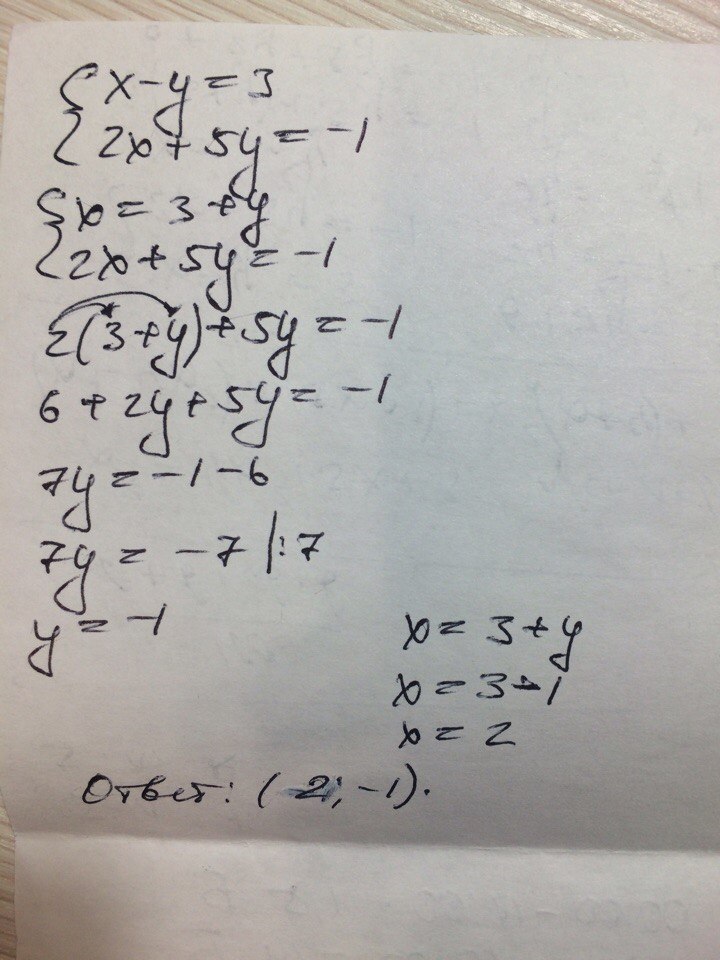 { x - y = 3
{ 2x + 5y = -1
{ x = 3 + y
{ 2x + 5y = -1
2(3 + y) + 5y = -1
6 + 2y + 5y = -1
7y = -1 - 6
7y = -7 |:7
y = -1
x = 3 + y
x = 3 - 1
x = 2
Ответ: (2; -1).